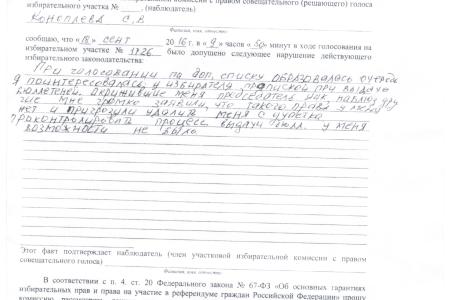 избирательной комиссии с правом совещательного (решающего) голоса
избирательного участка № ____, (наблюдатель)
Коноплева С.В
Фамилия, имя, отчество
сообщаю, что «18» сент 2016 г. в «9» часов «50» минут в ходе голосования на
избирательном участке № 1726 было допущено следующее нарушение действующего
избирательного законодательства:
При голосовании по доп. списку образовалась очередь
Я поинтересовалась у избирателя пропиской при выдаче
бюллетеней. Окружившие меня председатель УИК
мне громко заявили, что такого права у меня
нет и пригрозили удалить меня с участка
Проконтролировать процесс выдачи бюлл. у меня
возможности не было.
Этот факт подтверждает наблюдатель (член участковой избирательной комиссии с правом
совещательного голоса)
Фамилия, имя, отчество
В соответствии с п. 4. ст. 20 Федерального закона № 67-ФЗ «Об основных гарантиях
избирательных прав и права на участие в референдуме граждан Российской Федерации» прошу